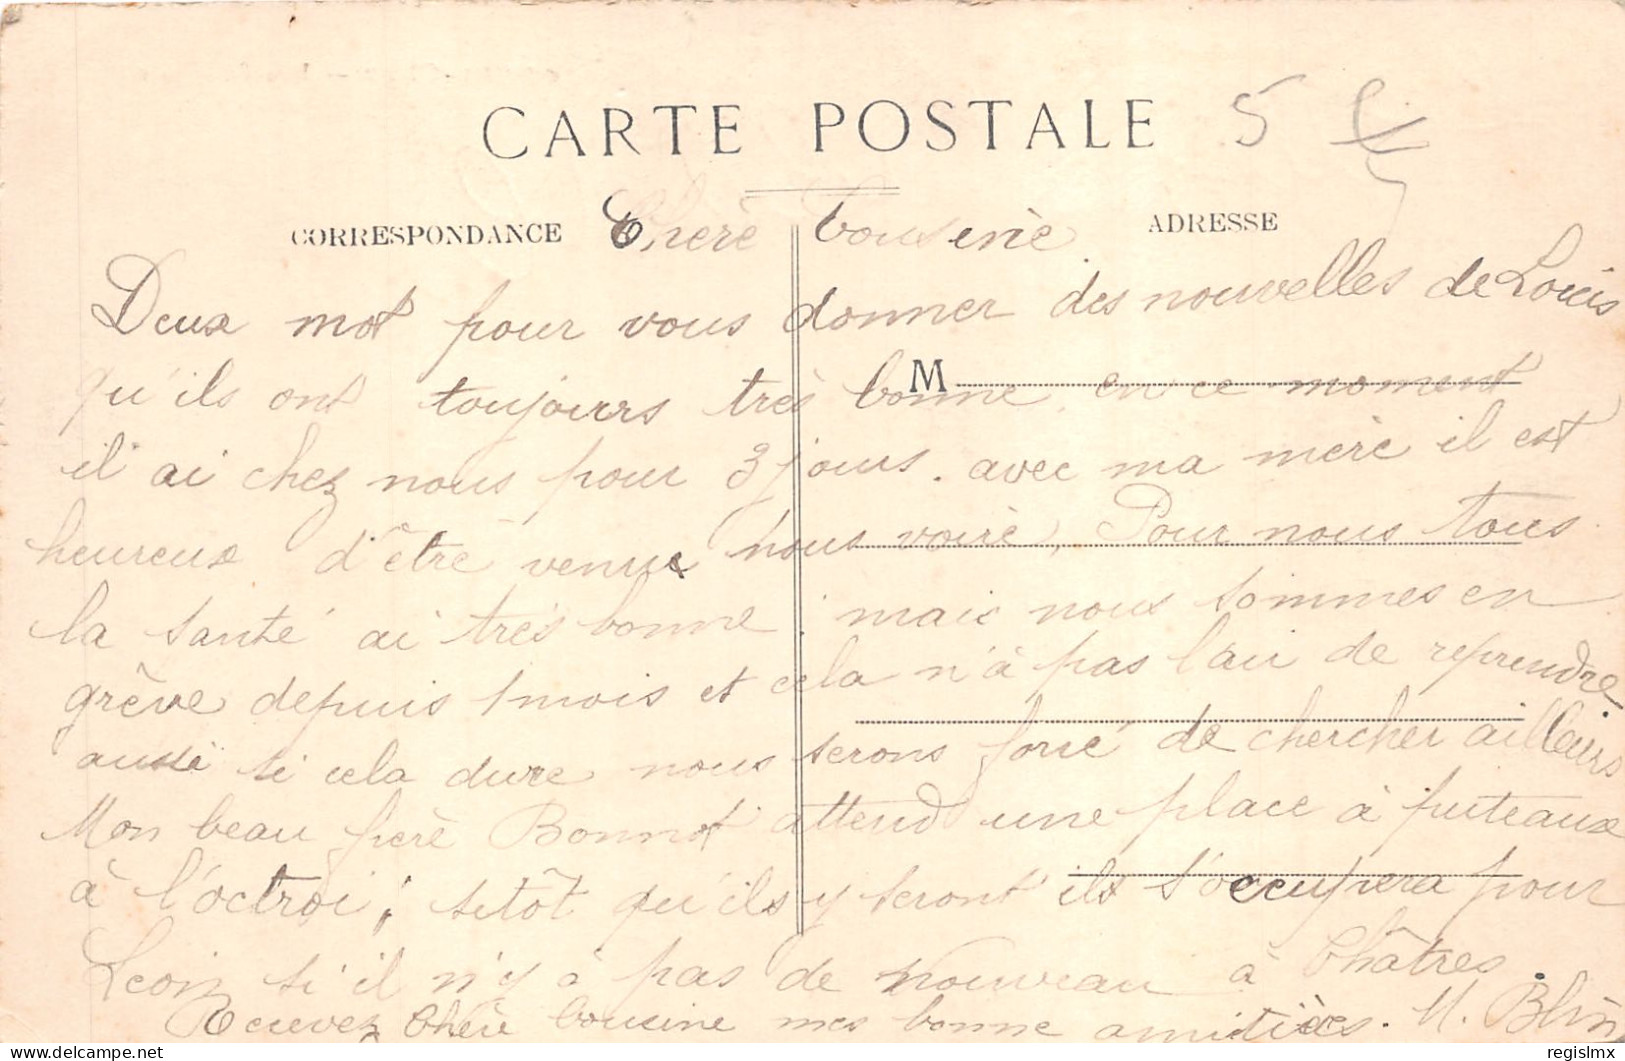 CARTE POSTALE 5
CORRESPONDANCE Cherè Cousinè ADRESSE
Deux mot pour vous donner des nouvelles de Louis
qu'ils ont toujours très bonne en ce moment
M
il ai chez nous pour 3 jours. avec ma merè il est
heureux d'êtrè venue nous voirè, Pour nous tous
la santé ai très bonne mais nous sommes en
grève depuis 1 mois et cela n'à pas l'air de reprendre
aussi si cela dure nous serons forcé de chercher ailleurs
Mon beau frerè Bonnot attend une place à puteaux
à l'octroi; sitôt qu'ils y seront ils s'occupera pour
Leon si il n'y à pas de nouveau à Châtres.
Recevez Chère Cousine mes bonne amitiées. M. Blin
regislmx
delcampe.net